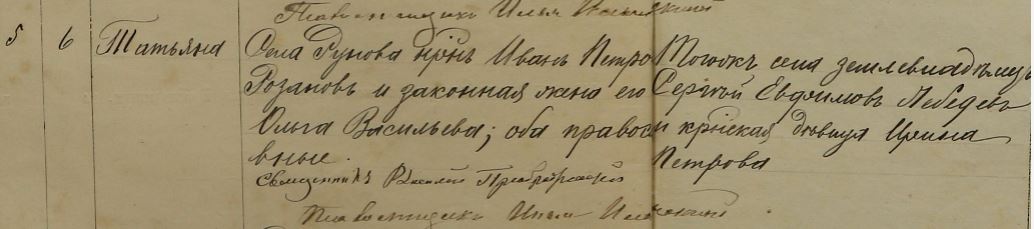 Псаломщикъ Илья
5 6 Татьяна
Села Рунова крнъ Иванъ Петро
Розановъ и законная жена его
Ольга Васильева; оба правосла
вные.
Тогожъ села землевладѣлецъ
Сергѣй Евфимовъ Лебедевъ
и крнская дѣвица Ирина
Петрова
Священникъ Василій Преображенскій
Псаломщикъ Илья